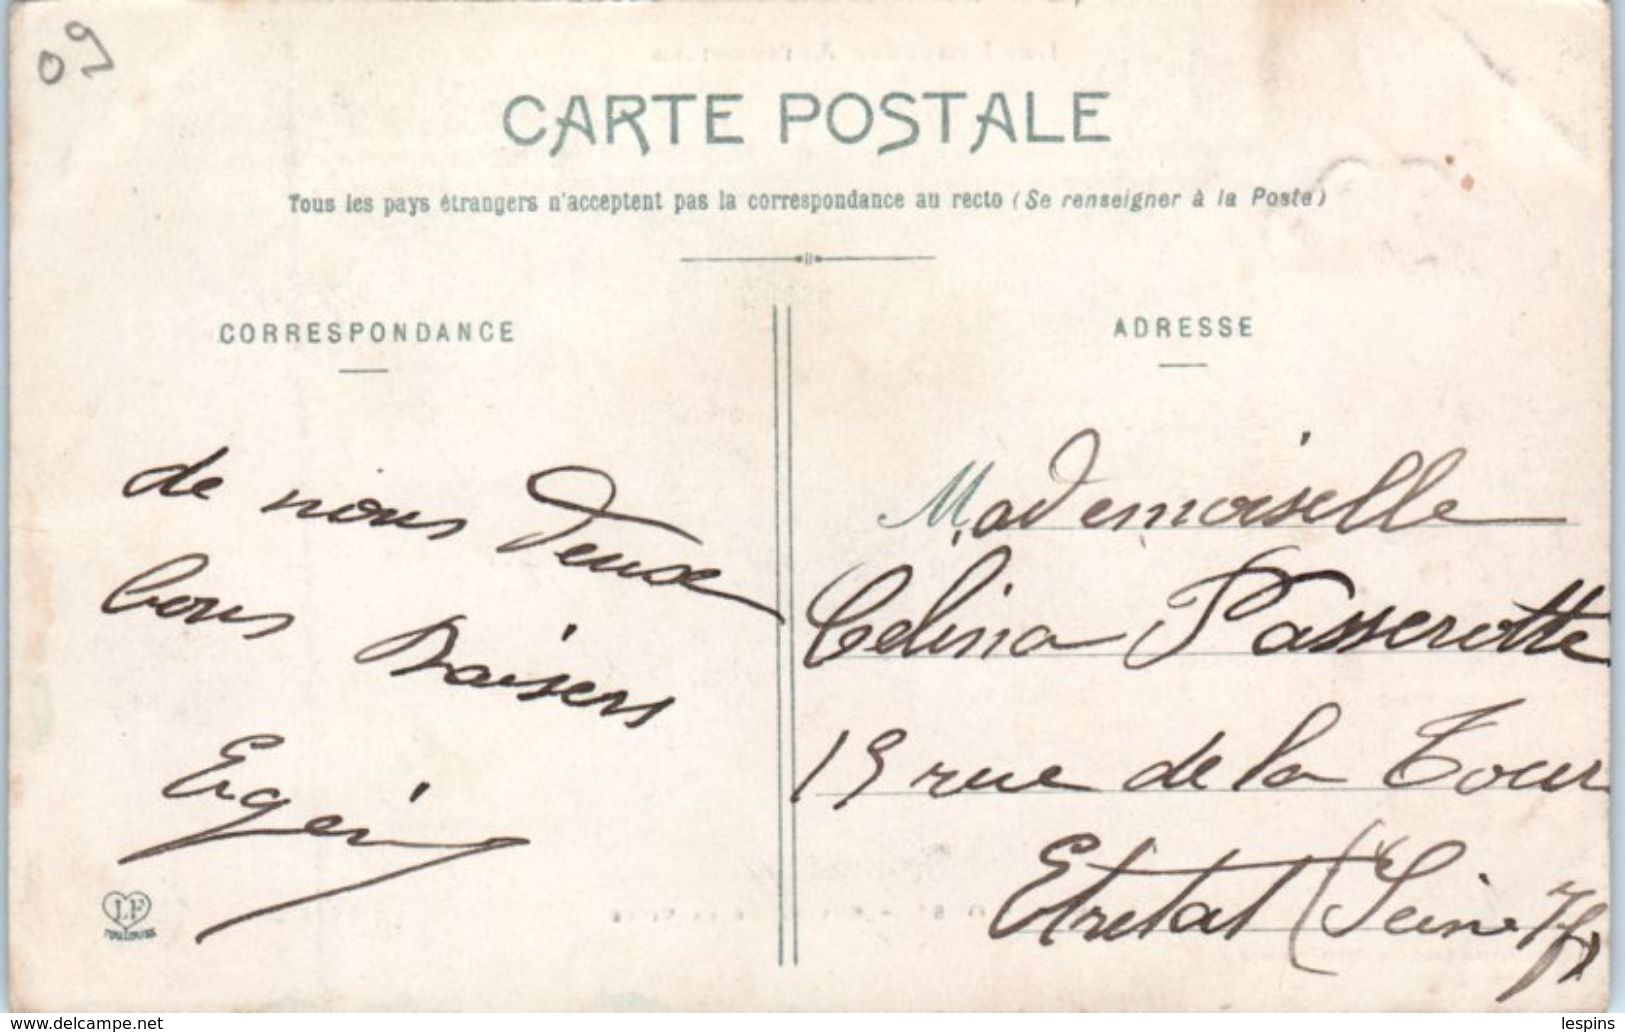 09
CARTE POSTALE
Tous les pays étrangers n'acceptent pas la correspondance au recto (Se renseigner à la Poste)
CORRESPONDANCE
de nous deux
bons Baisers
LF
TOULOUSE
ADRESSE
Mademoiselle
Celina Passerotte
19 rue de la Tour
Etretat (Seine Infre)
www.delcampe.net
lespins